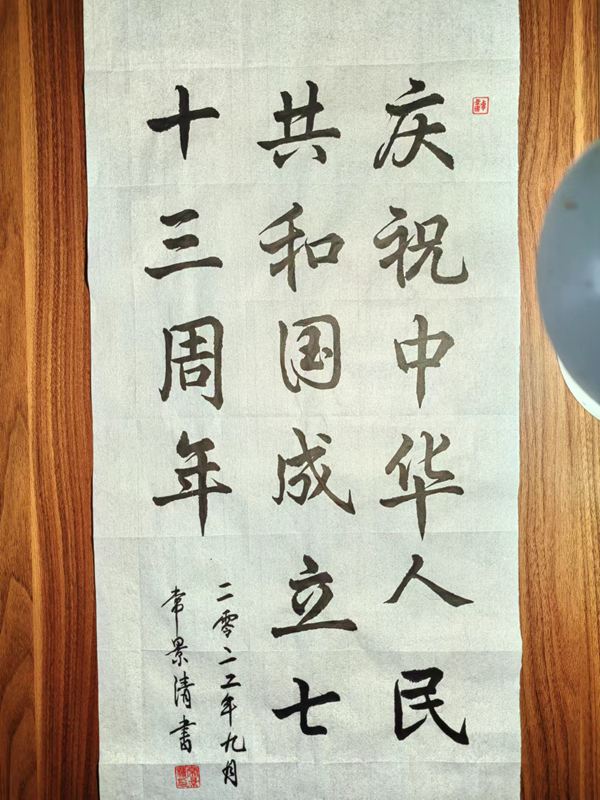 庆祝中华人民
共和国成立七
十三周年
二零二二年九月
常景清书